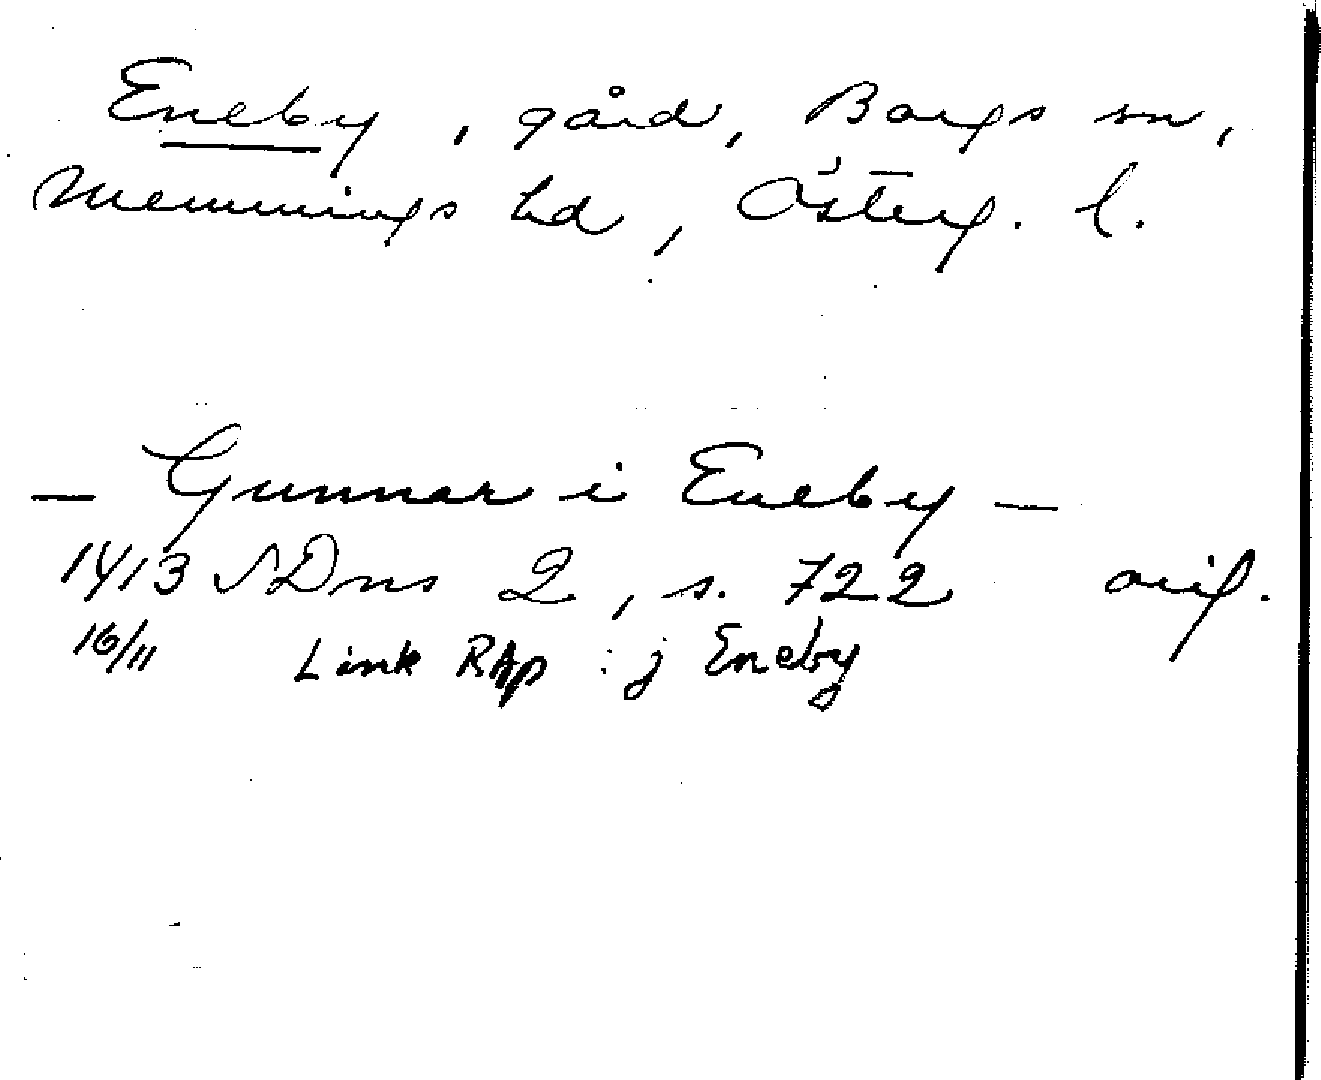 Eneby, gård, Borgs sn,
Memmings hd, Österg. l.
— Gunnar i Eneby —
1413 SDns 2, s. 722 orig.
16/11 Link RAp : j Eneby